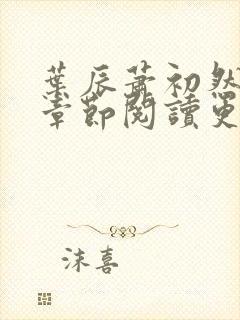 葉辰蕭初然
章節閱讀更
沫喜